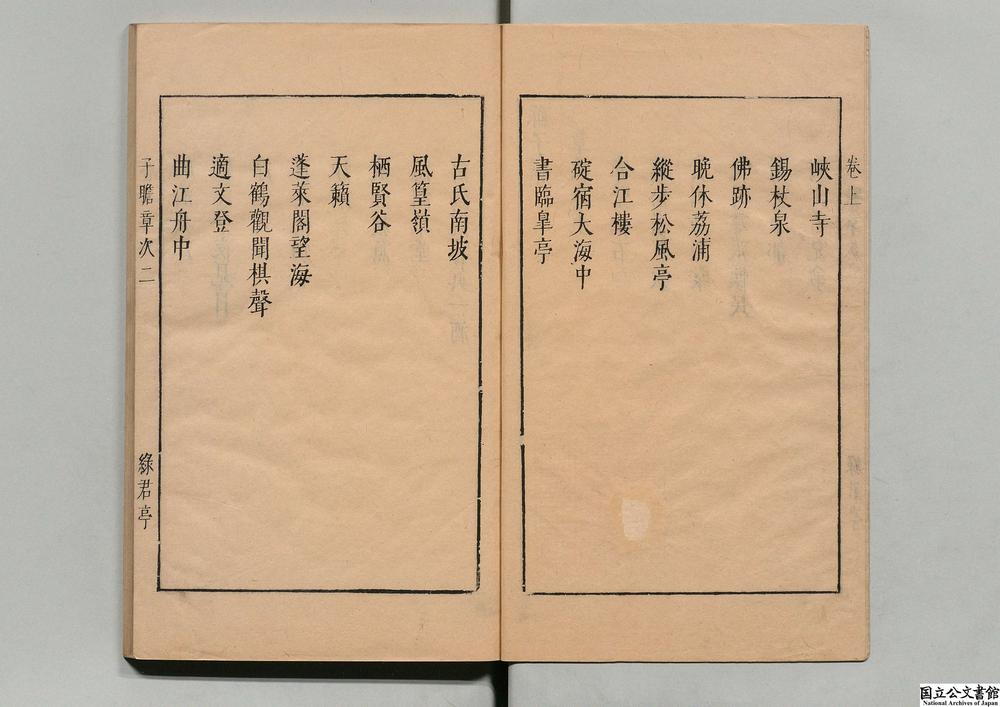 卷上
峽山寺
錫杖泉
佛跡
晚休荔浦
縱步松風亭
合江樓
碇宿大海中
書臨皐亭
古氏南坡
風篁嶺
栖賢谷
天籟
蓬萊閣望海
白鶴觀聞棋聲
適文登
曲江舟中
子瞻章次二
綠君亭
国立公文書館
National Archives of Japan